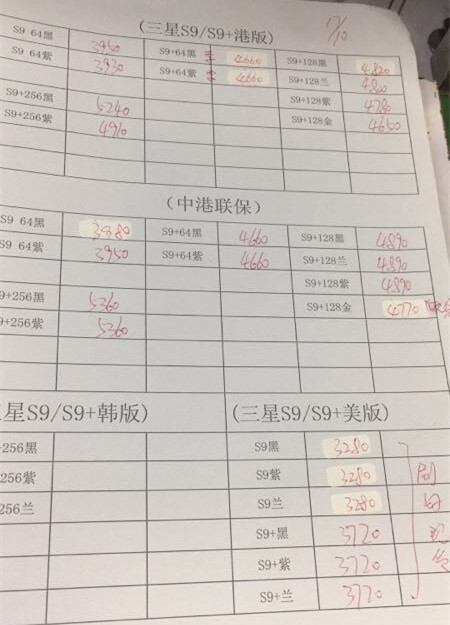 (三星S9/S9+港版)
S9 64黑 3950 S9+64黑 4660 S9+128黑 4820
S9 64紫 3930 S9+64紫 4660 S9+128兰 4800
S9+256黑 5240 S9+128紫 4780
S9+256紫 4910 S9+128金 4650
(中港联保)
S9 64黑 3880 S9+64黑 4660 S9+128黑 4890
S9 64紫 3950 S9+64紫 4660 S9+128兰 4890
S9+128紫 4890
S9+256黑 5260 S9+128金 4770
S9+256紫 5260
三星S9/S9+韩版) (三星S9/S9+美版)
+256黑 S9黑 3280
256紫 S9紫 3280
256兰 S9兰 3280
S9+黑 3720
S9+紫 3720
S9+兰 3720